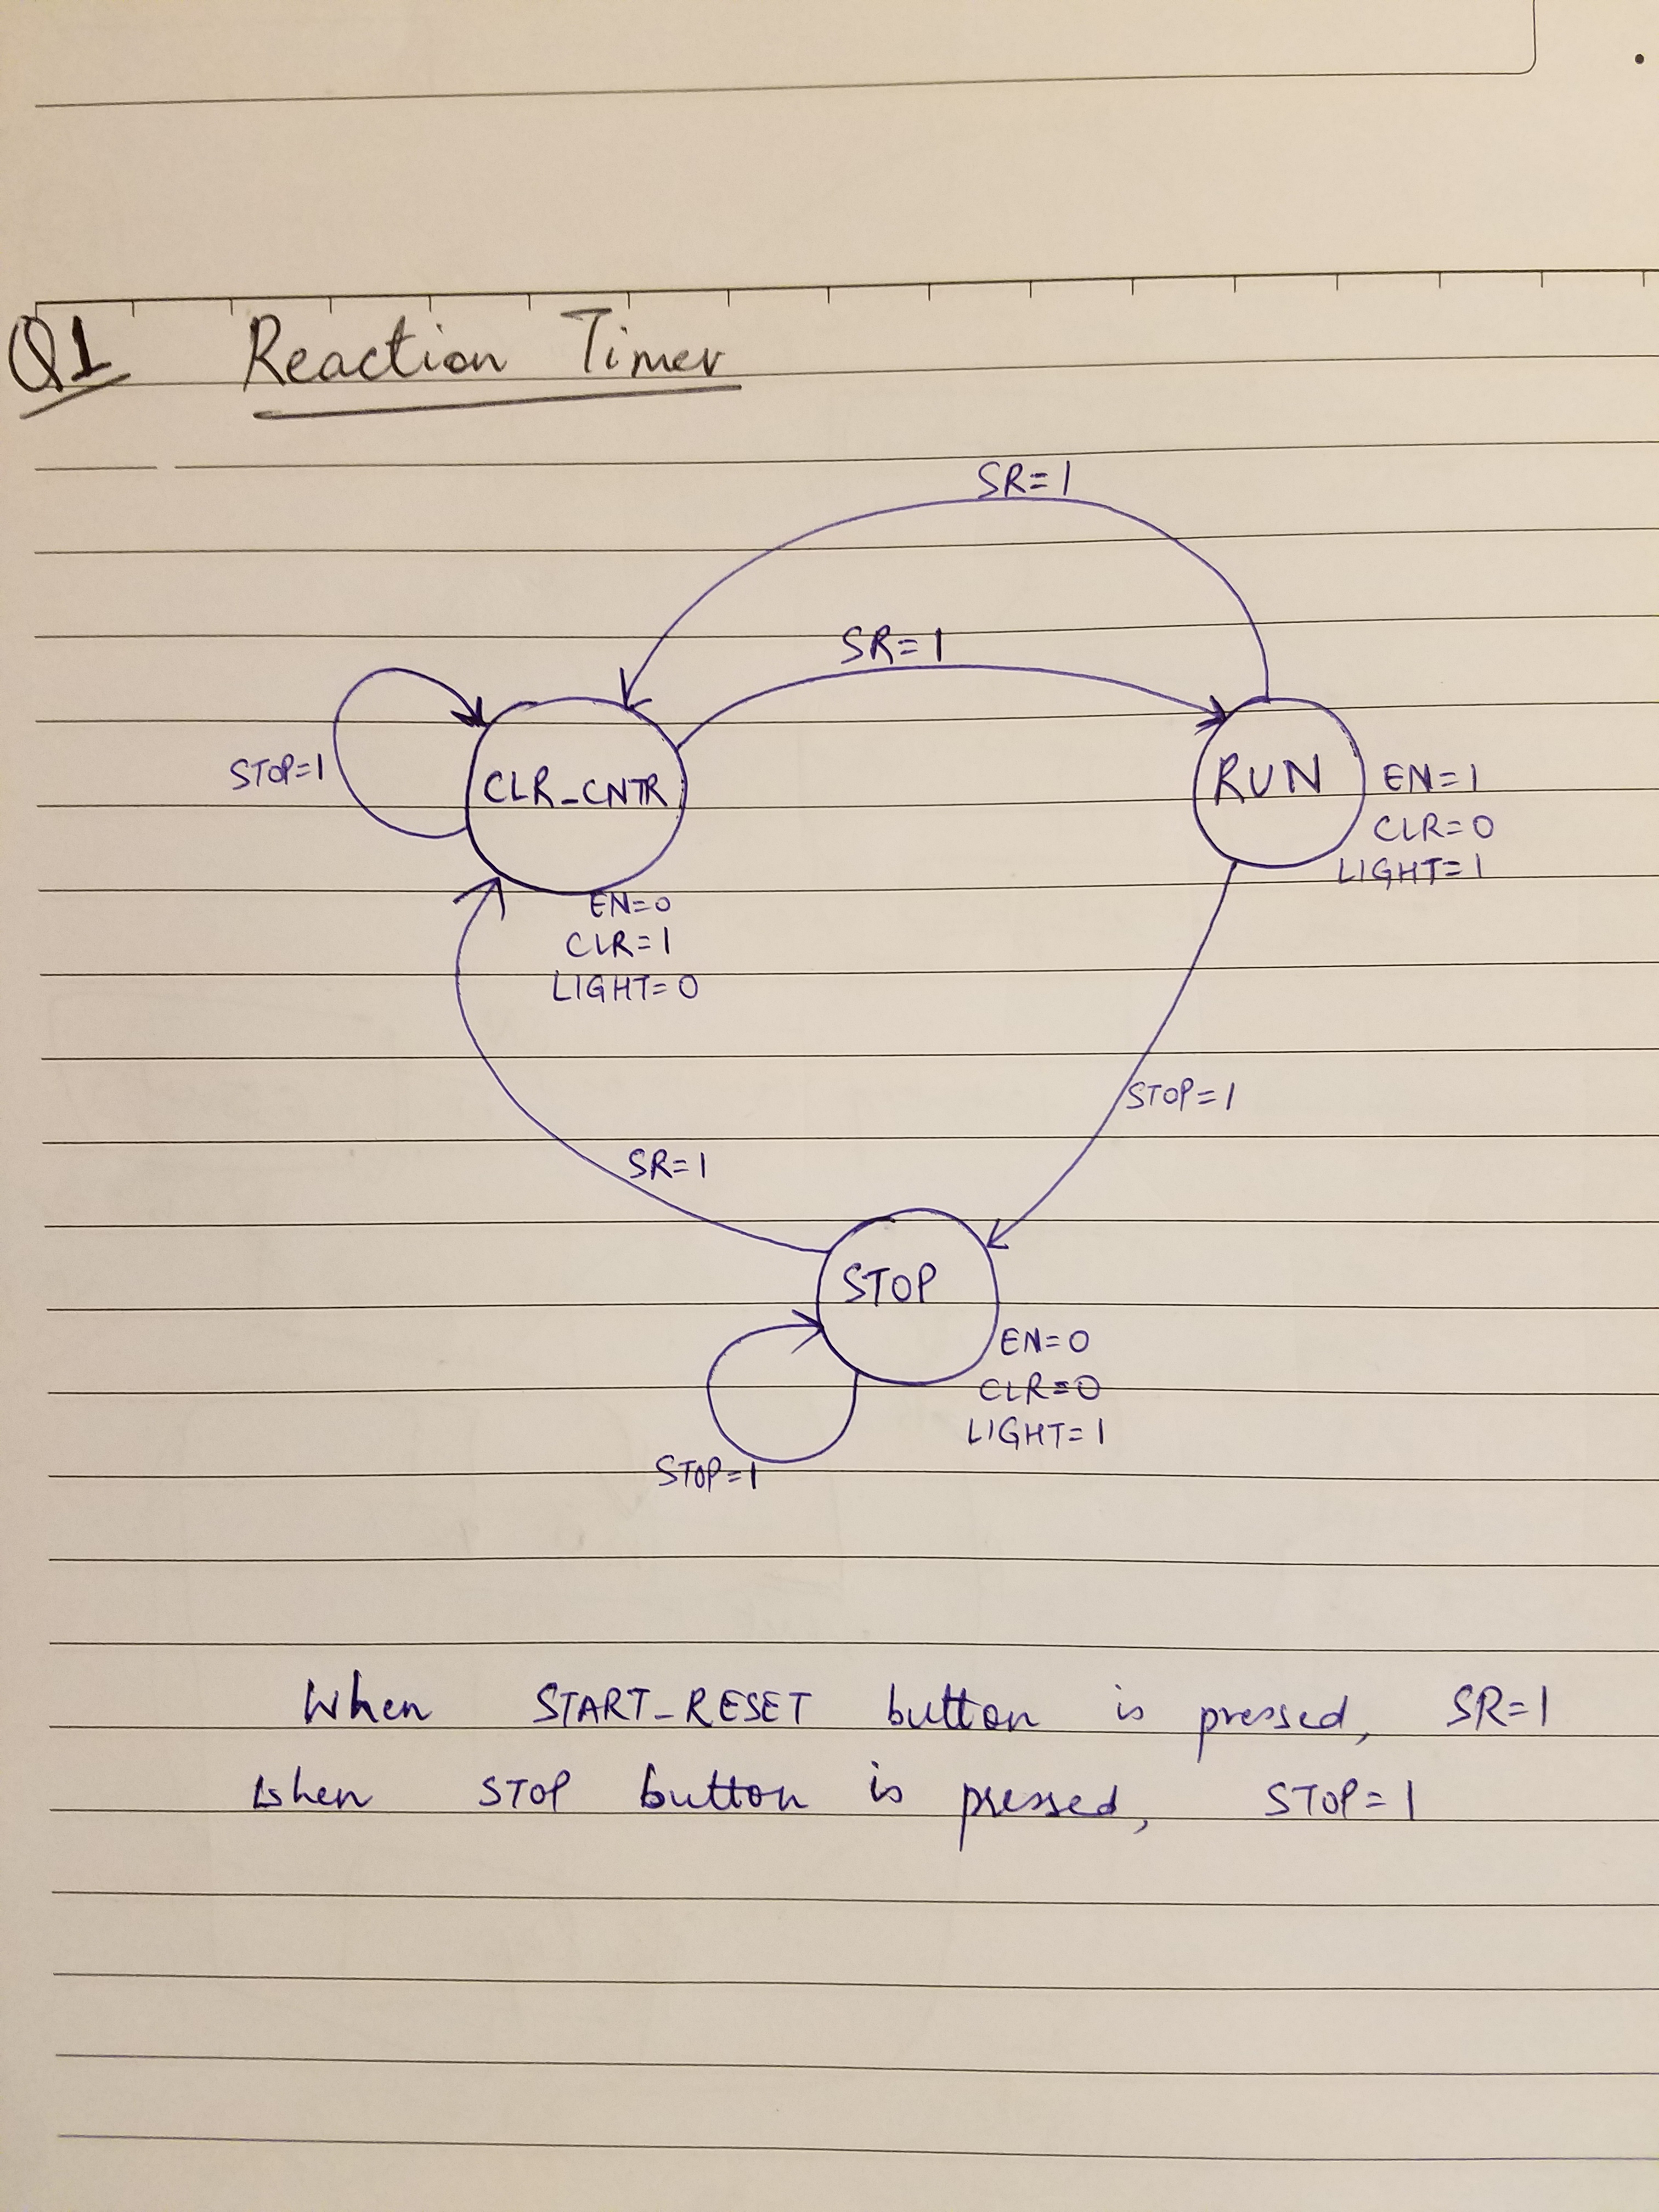 Q1 Reaction Timer
SR=1
SR=1
STOP=1
CLR_CNTR
RUN
EN=1
CLR=0
LIGHT=1
EN=0
CLR=1
LIGHT=0
STOP=1
SR=1
STOP
EN=0
CLR=0
LIGHT=1
STOP=1
When START_RESET button is pressed, SR=1
when STOP button is pressed, STOP=1